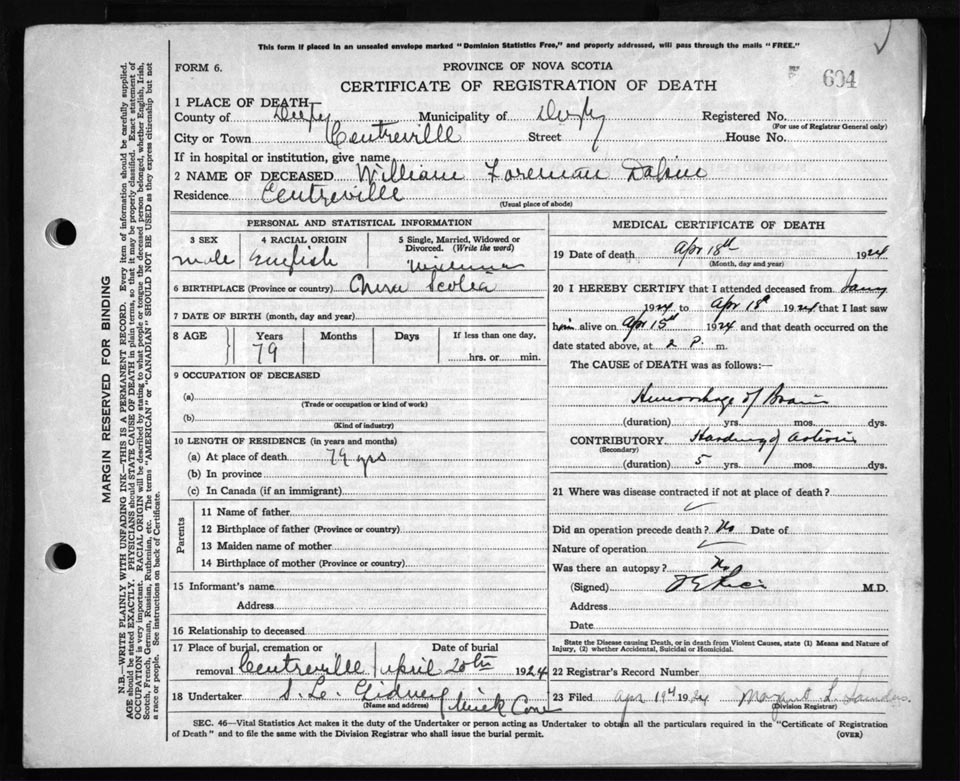 This form if placed in an unsealed envelope marked "Dominion Statistics Free," and properly addressed, will pass through the mails "FREE."
FORM 6.
PROVINCE OF NOVA SCOTIA
604
CERTIFICATE OF REGISTRATION OF DEATH
1 PLACE OF DEATH
County of Digby Municipality of Digby Registered No.
(For use of Registrar General only)
City or Town Centreville Street House No.
If in hospital or institution, give name
2 NAME OF DECEASED William Foreman
Residence Centreville
(Usual place of abode)
PERSONAL AND STATISTICAL INFORMATION
3 SEX 4 RACIAL ORIGIN 5 Single, Married, Widowed or Divorced. (Write the word)
male English
6 BIRTHPLACE (Province or country) Nova Scotia
7 DATE OF BIRTH (month, day and year)
8 AGE Years Months Days If less than one day,
79 hrs. or min.
9 OCCUPATION OF DECEASED
(a)
(Trade or occupation or kind of work)
(b)
(Kind of industry)
10 LENGTH OF RESIDENCE (in years and months)
(a) At place of death 79 yrs
(b) In province
(c) In Canada (if an immigrant)
Parents
11 Name of father
12 Birthplace of father (Province or country)
13 Maiden name of mother
14 Birthplace of mother (Province or country)
15 Informant's name
Address
16 Relationship to deceased
17 Place of burial, cremation or removal Date of burial
Centreville April 20th 1924
18 Undertaker Gidney
(Name and address)
MEDICAL CERTIFICATE OF DEATH
19 Date of death Apr 18th 1924
(Month, day and year)
20 I HEREBY CERTIFY that I attended deceased from
1924 to Apr 18th 1924 that I last saw
him alive on Apr 15th 1924 and that death occurred on
date stated above, at 2 P. m.
The CAUSE of DEATH was as follows:—
Hemorrhage of Brain
(duration) yrs. mos. dys.
CONTRIBUTORY. Hardening of arteries
(Secondary)
(duration) 5 yrs. mos. dys.
21 Where was disease contracted if not at place of death?
Did an operation precede death? No Date of
Nature of operation
Was there an autopsy? No
(Signed) M.D.
Address
Date
State the Disease causing Death, or in death from Violent Causes, state (1) Means and Nature of Injury, (2) whether Accidental, Suicidal or Homicidal.
22 Registrar's Record Number
23 Filed Apr 19th 1924 L. Saunders
(Division Registrar)
SEC. 46—Vital Statistics Act makes it the duty of the Undertaker or person acting as Undertaker to obtain all the particulars required in the "Certificate of Registration of Death" and to file the same with the Division Registrar who shall issue the burial permit.
(OVER)
MARGIN RESERVED FOR BINDING
N.B.—WRITE PLAINLY WITH UNFADING INK—THIS IS A PERMANENT RECORD. Every item of information should be carefully supplied.
AGE should be stated EXACTLY. PHYSICIANS should STATE CAUSE OF DEATH in plain terms, so that it may be properly classified. Exact statement of
OCCUPATION is very important. RACIAL ORIGIN will be described by stating to what people or tongue the deceased person belonged, whether English, Irish,
Scotch, French, German, Russian, Ruthenian, etc. The terms "AMERICAN" or "CANADIAN" SHOULD NOT BE USED as they express citizenship but not
a race or people. See instructions on back of Certificate.